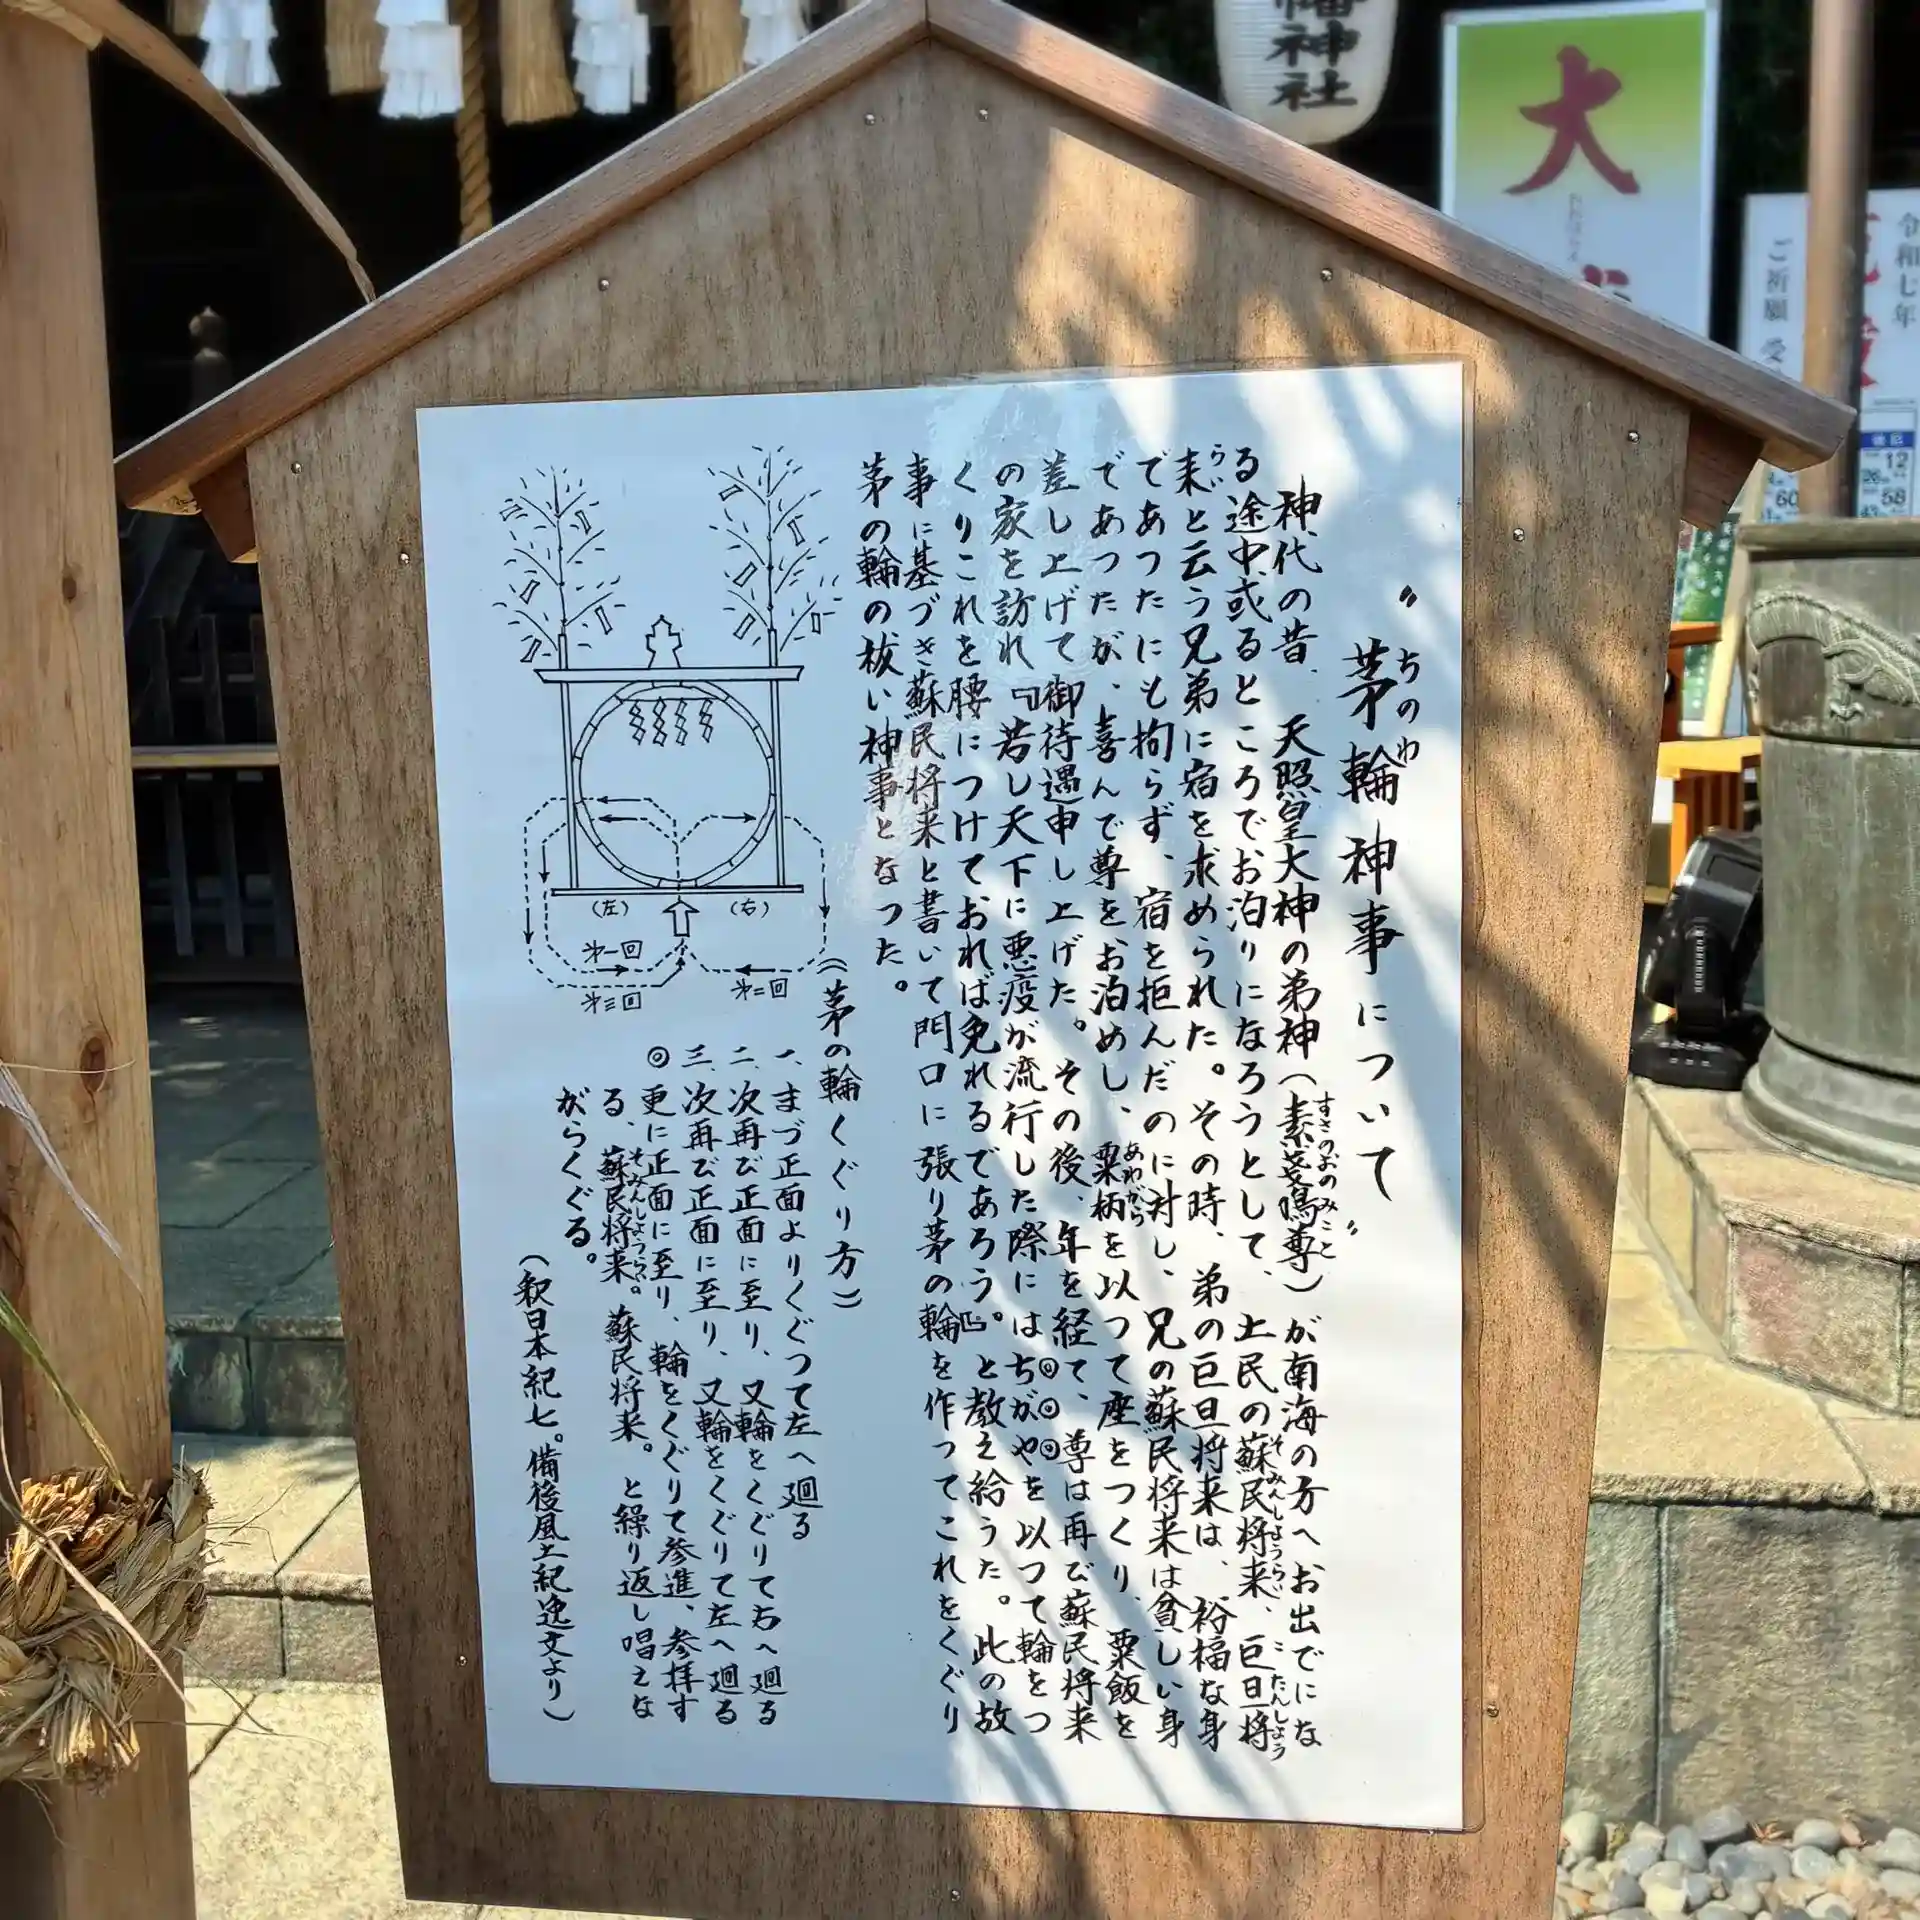 〝茅輪神事について〟
ちのわ
神代の昔、天照皇大神の弟神(素戔嗚尊)が南海の方へお出でにな
すさのおのみこと
る途中或るところでお泊りになろうとして、土民の蘇民将来、巨旦将
そみんしょうらい
こたんしょう
来と云う兄弟に宿を求められた。その時、弟の巨旦将来は、裕福な身
らい
であつたにも拘らず、宿を拒んだのに対し、兄の蘇民将来は貧しい身
であつたが、喜んで尊をお泊めし、粟柄を以つて座をつくり、粟飯を
あわがら
差し上げて御待遇申し上げた。その後、年を経て、尊は再び蘇民将来
の家を訪れ『若し天下に悪疫が流行した際にはちがやを以つて輪をつ
◎◎◎
くりこれを腰につけておれば免れるであろう。』と教え給うた。此の故
事に基づき蘇民将来と書いて門口に張り茅の輪を作つてこれをくぐり
茅の輪の祓い神事となつた。
(左)
(右)
第一回
第二回
第三回
((茅の輪くぐり方))
一、まづ正面よりくぐつて左へ廻る
二、次再び正面に至り、又輪をくぐりて右へ廻る
三、次再び正面に至り、又輪をくぐりて左へ廻る
◎更に正面に至り、輪をくぐりて参進、参拝す
る、蘇民将来。蘇民将来。と繰り返し唱えな
そみんしようらい
がらくぐる。
(釈日本紀七。備後風土紀逸文より)
幡神社
大
令和七年
ご祈願 受
12
26
60
58
43